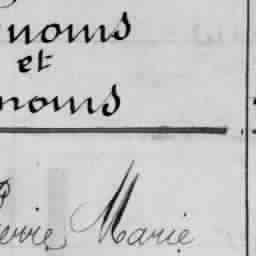 noms
et
noms
Pierre Marie